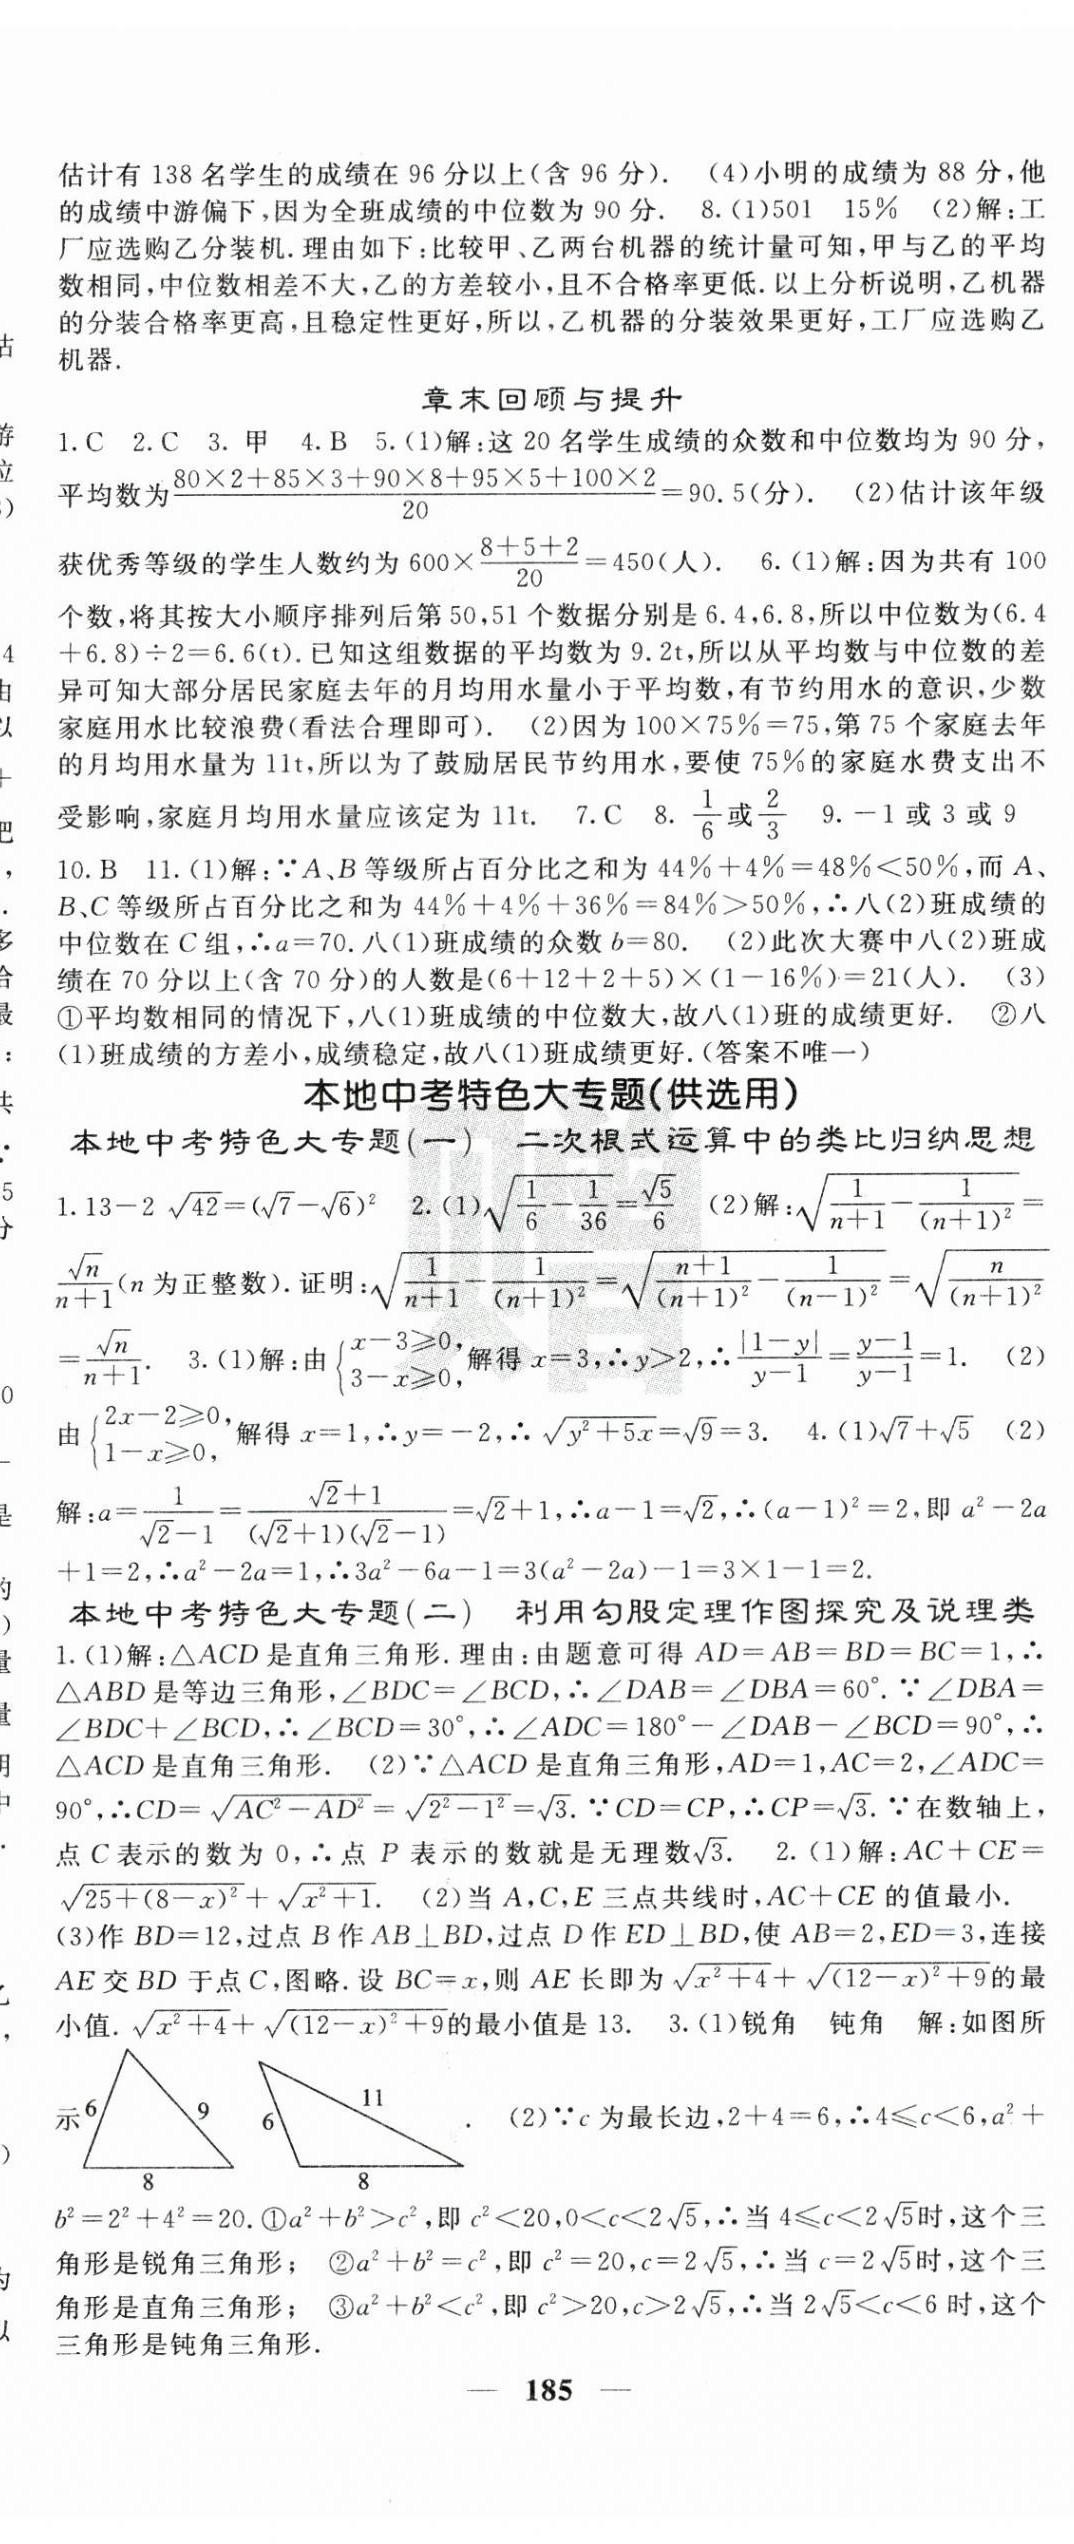 估计有 138 名学生的成绩在 96 分以上(含 96 分). (4)小明的成绩为 88 分,他
的成绩中游偏下,因为全班成绩的中位数为 90 分. 8.(1)501 15% (2)解:工
厂应选购乙分装机.理由如下:比较甲、乙两台机器的统计量可知,甲与乙的平均
数相同,中位数相差不大,乙的方差较小,且不合格率更低.以上分析说明,乙机器
的分装合格率更高,且稳定性更好,所以,乙机器的分装效果更好,工厂应选购乙
机器.
章末回顾与提升
1.C 2.C 3.甲 4.B 5.(1)解:这 20 名学生成绩的众数和中位数均为 90 分,
平均数为(80×2+85×3+90×8+95×5+100×2)/20=90.5(分). (2)估计该年级
获优秀等级的学生人数约为 600×(8+5+2)/20=450(人). 6.(1)解:因为共有 100
个数,将其按大小顺序排列后第 50,51 个数据分别是 6.4,6.8,所以中位数为(6.4
+6.8)÷2=6.6(t).已知这组数据的平均数为 9.2t,所以从平均数与中位数的差
异可知大部分居民家庭去年的月均用水量小于平均数,有节约用水的意识,少数
家庭用水比较浪费(看法合理即可). (2)因为 100×75%=75,第 75 个家庭去年
的月均用水量为 11t,所以为了鼓励居民节约用水,要使 75%的家庭水费支出不
受影响,家庭月均用水量应该定为 11t. 7.C 8. 1/6或2/3 9.-1 或 3 或 9
10.B 11.(1)解:∵A、B 等级所占百分比之和为 44%+4%=48%<50%,而 A、
B、C 等级所占百分比之和为 44%+4%+36%=84%>50%,∴八(2)班成绩的
中位数在 C 组,∴a=70.八(1)班成绩的众数 b=80. (2)此次大赛中八(2)班成
绩在 70 分以上(含 70 分)的人数是(6+12+2+5)×(1-16%)=21(人). (3)
①平均数相同的情况下,八(1)班成绩的中位数大,故八(1)班的成绩更好. ②八
(1)班成绩的方差小,成绩稳定,故八(1)班成绩更好.(答案不唯一)
本地中考特色大专题(供选用)
本地中考特色大专题(一) 二次根式运算中的类比归纳思想
1.13-2√42=(√7-√6)² 2.(1)√(1/6-1/36)=√5/6 (2)解:√(1/(n+1)-1/(n+1)²)=
√n/(n+1)(n 为正整数).证明:√(1/(n+1)-1/(n+1)²)=√((n+1)/(n+1)²-1/(n-1)²)=√(n/(n+1)²)
=√n/(n+1). 3.(1)解:由{x-3≥0,3-x≥0,解得 x=3,∴y>2,∴|1-y|/(y-1)=(y-1)/(y-1)=1. (2)
由{2x-2≥0,1-x≥0,解得 x=1,∴y=-2,∴√(y²+5x)=√9=3. 4.(1)√7+√5 (2)
解:a=1/(√2-1)=(√2+1)/((√2+1)(√2-1))=√2+1,∴a-1=√2,∴(a-1)²=2,即 a²-2a
+1=2,∴a²-2a=1,∴3a²-6a-1=3(a²-2a)-1=3×1-1=2.
本地中考特色大专题(二) 利用勾股定理作图探究及说理类
1.(1)解:△ACD 是直角三角形.理由:由题意可得 AD=AB=BD=BC=1,∴
△ABD 是等边三角形,∠BDC=∠BCD,∴∠DAB=∠DBA=60°.∵∠DBA=
∠BDC+∠BCD,∴∠BCD=30°,∴∠ADC=180°-∠DAB-∠BCD=90°,∴
△ACD 是直角三角形. (2)∵△ACD 是直角三角形,AD=1,AC=2,∠ADC=
90°,∴CD=√(AC²-AD²)=√(2²-1²)=√3.∵CD=CP,∴CP=√3.∵在数轴上,
点 C 表示的数为 0,∴点 P 表示的数就是无理数√3. 2.(1)解:AC+CE=
√(25+(8-x)²)+√(x²+1). (2)当 A,C,E 三点共线时,AC+CE 的值最小.
(3)作 BD=12,过点 B 作 AB⊥BD,过点 D 作 ED⊥BD,使 AB=2,ED=3,连接
AE 交 BD 于点 C,图略.设 BC=x,则 AE 长即为√(x²+4)+√((12-x)²+9)的最
小值.√(x²+4)+√((12-x)²+9)的最小值是 13. 3.(1)锐角 钝角 解:如图所
示 6 9 8 6 11 8 . (2)∵c 为最长边,2+4=6,∴4≤c<6,a²+
b²=2²+4²=20.①a²+b²>c²,即 c²<20,0<c<2√5,∴当 4≤c<2√5时,这个三
角形是锐角三角形; ②a²+b²=c²,即 c²=20,c=2√5,∴当 c=2√5时,这个三
角形是直角三角形; ③a²+b²<c²,即 c²>20,c>2√5,∴当 2√5<c<6 时,这个
三角形是钝角三角形.
— 185 —